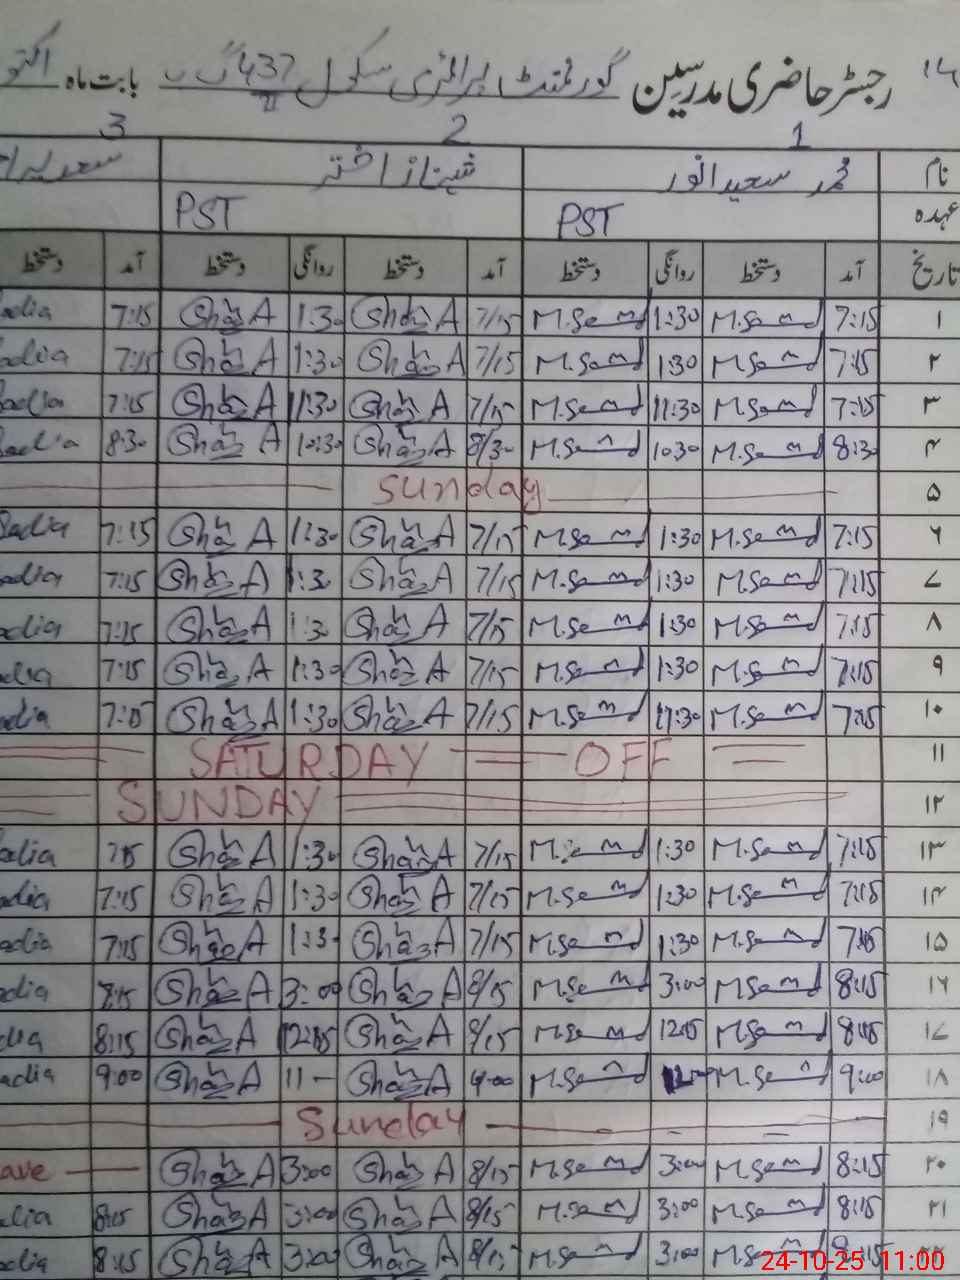 رجسٹر حاضری مدرسین گورنمنٹ پرائمری سکول 437 گ ب بابت ماہ
1 2 3
نام محمد سعید انور شہناز اختر سعدیہ
عہدہ PST PST
تاریخ آمد دستخط روانگی دستخط آمد دستخط روانگی دستخط آمد دستخط
۱ 7:15 M.Saeed 1:30 M.Saeed 7/15 Shaz A 1:30 Shaz A 7:15 adia
۲ 7:15 M.Saeed 1:30 M.Saeed 7/15 Shaz A 1:30 Shaz A 7:15 adia
۳ 7:15 M.Saeed 11:30 M.Saeed 7/15 Shaz A 11:30 Shaz A 7:15 Sadia
۴ 8:30 M.Saeed 10:30 M.Saeed 8/30 Shaz A 10:30 Shaz A 8:30 Sadia
۵ Sunday
۶ 7:15 M.Saeed 1:30 M.Saeed 7/15 Shaz A 1:30 Shaz A 7:15 Sadia
۷ 7:15 M.Saeed 1:30 M.Saeed 7/15 Shaz A 1:30 Shaz A 7:15 adia
۸ 7:15 M.Saeed 1:30 M.Saeed 7/15 Shaz A 1:30 Shaz A 7:15 adia
۹ 7:15 M.Saeed 1:30 M.Saeed 7/15 Shaz A 1:30 Shaz A 7:15 adia
۱۰ 7:15 M.Saeed 11:30 M.Saeed 7/15 Shaz A 1:30 Shaz A 7:15 adia
۱۱ SATURDAY OFF
۱۲ SUNDAY
۱۳ 7:15 M.Saeed 1:30 M.Saeed 7/15 Shaz A 1:30 Shaz A 7:15 adia
۱۴ 7:15 M.Saeed 1:30 M.Saeed 7/15 Shaz A 1:30 Shaz A 7:15 adia
۱۵ 7:15 M.Saeed 1:30 M.Saeed 7/15 Shaz A 1:30 Shaz A 7:15 adia
۱۶ 8:15 M.Saeed 3:00 M.Saeed 8/15 Shaz A 3:00 Shaz A 8:15 adia
۱۷ 8:15 M.Saeed 12:15 M.Saeed 8/15 Shaz A 12:15 Shaz A 8:15 dia
۱۸ 9:00 M.Saeed M.Saeed 9:00 Shaz A 11 - Shaz A 9:00 adia
۱۹ Sunday
۲۰ 8:15 M.Saeed 3:00 M.Saeed 8/15 Shaz A 3:00 Shaz A ave
۲۱ 8:15 M.Saeed 3:00 M.Saeed 8/15 Shaz A 3:00 Shaz A 8:15 adia
۲۲ 8:15 M.Saeed 3:00 M.Saeed 8/15 Shaz A 3:00 Shaz A 8:15 adia
24-10-25 11:00